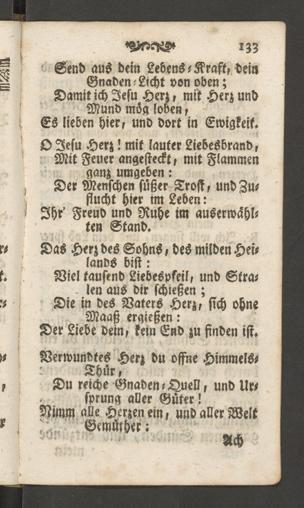 133
Send aus dein Lebens-Kraft, dein
Gnaden-Licht von oben;
Damit ich Jesu Herz, mit Herz und
Mund mög loben,
Es lieben hier, und dort in Ewigkeit.
O Jesu Herz! mit lauter Liebesbrand,
Mit Feuer angesteckt, mit Flammen
ganz umgeben:
Der Menschen süßer Trost, und Zu-
flucht hier im Leben:
Ihr' Freud und Ruhe im auserwähl-
ten Stand.
Das Herz des Sohns, des milden Hei-
lands bist:
Viel tausend Liebespfeil, und Stra-
len aus dir schießen;
Die in des Vaters Herz, sich ohne
Maaß ergießen:
Der Liebe dein, kein End zu finden ist.
Verwundtes Herz du offne Himmels-
Thür,
Du reiche Gnaden-Quell, und Ur-
sprung aller Güter!
Nimm alle Herzen ein, und aller Welt
Gemüther:
Ach